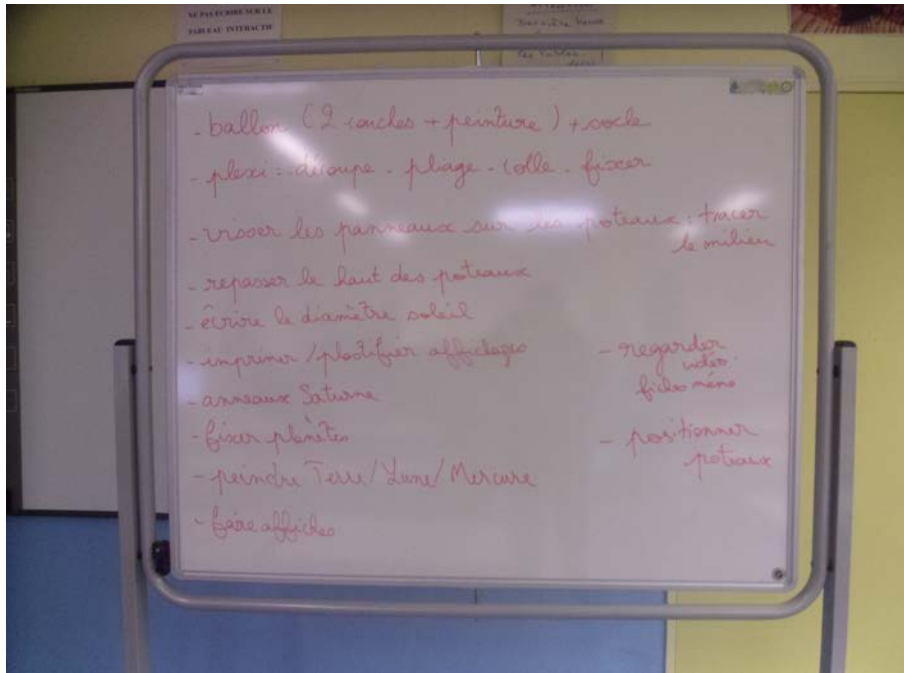 NE PAS ECRIRE SUR LE
TABLEAU INTERACTIF
Dernière heure
les tables
- ballon (2 couches + peinture) + socle
- plexi : découpe - pliage - colle - fixer
- visser les panneaux sur les poteaux : tracer
le milieu
- repasser le haut des poteaux
- écrire le diamètre soleil
- imprimer / plastifier affichages
- anneaux Saturne
- fixer planètes
- peindre Terre / Lune / Mercure
- faire affiches
- regarder
vidéo
fiches
- positionner
poteaux